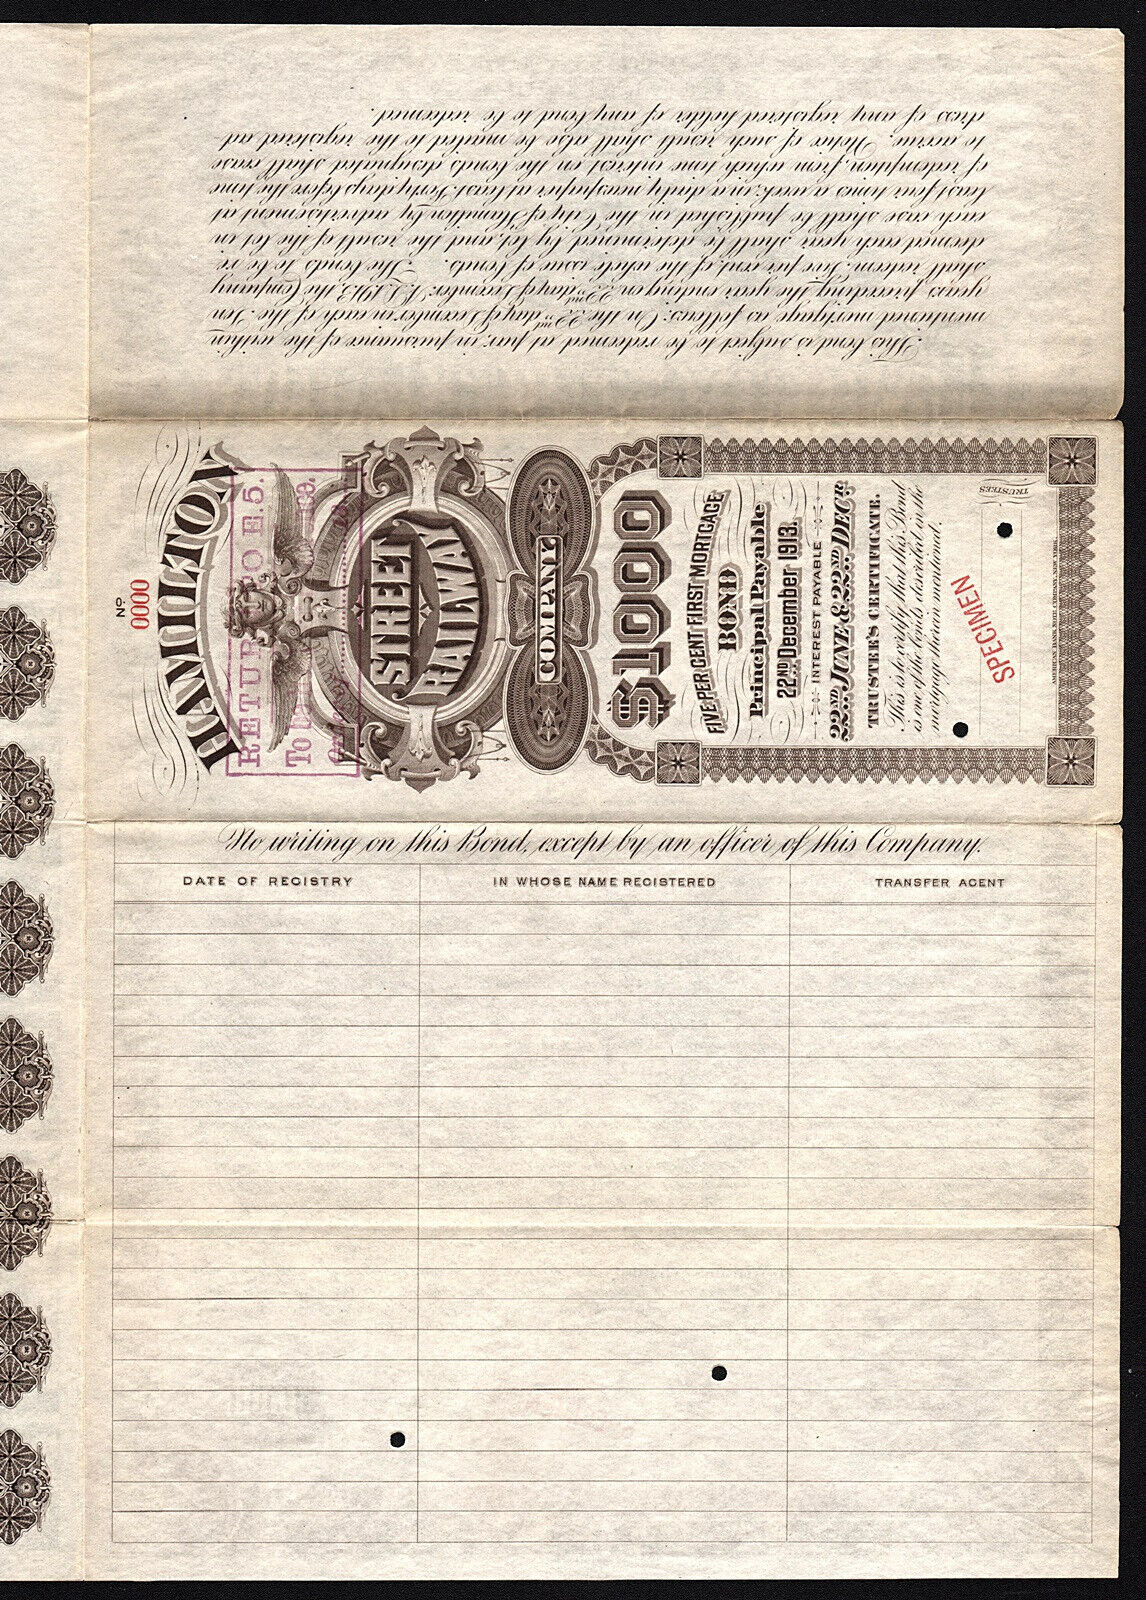 This bond is subject to be redeemed at par, in pursuance of the within
mentioned mortgage as follows: On the 22nd day of December in each of the Ten
years preceding the year ending on 22nd day of December, A.D. 1913, the Company
shall redeem Five per cent. of the whole issue of bonds. The bonds to be re-
deemed each year shall be determined by lot, and the result of the lot in
each case shall be published in the City of Hamilton by advertisement at
least four times a week, in a daily newspaper at least thirty days before the time
of redemption, from which time interest on the bonds designated shall cease
to accrue. Notice of such result shall also be mailed to the registered ad-
dress of any registered holder of any bond to be redeemed.
No.
0000
HAMILTON
RETURN TO E.5.
To
189
STREET
RAILWAY
COMPANY
$1000
FIVE PER CENT FIRST MORTGAGE
BOND
Principal Payable
22ND December 1913.
INTEREST PAYABLE
22ND JUNE & 22ND DECR.
TRUSTEE'S CERTIFICATE.
This is to certify that this Bond
is one of the bonds described in the
mortgage therein mentioned.
SPECIMEN
TRUSTEES
AMERICAN BANK NOTE COMPANY, NEW YORK.
No writing on this Bond, except by an officer of this Company.
DATE OF REGISTRY IN WHOSE NAME REGISTERED TRANSFER AGENT